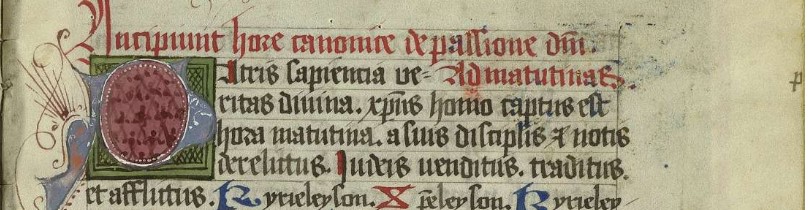 Incipiunt hore canonice de passione dm̄.
Atris sapiencia ve= Ad matutinas.
ritas diuina. xp̄us homo captus est
hora matutina. a suis discip̄lis ⁊ notis
derelictus. Iudeis uenditus. traditus.
et afflictus. Kyrieleyson. Xp̄eleyson. Kyrieley